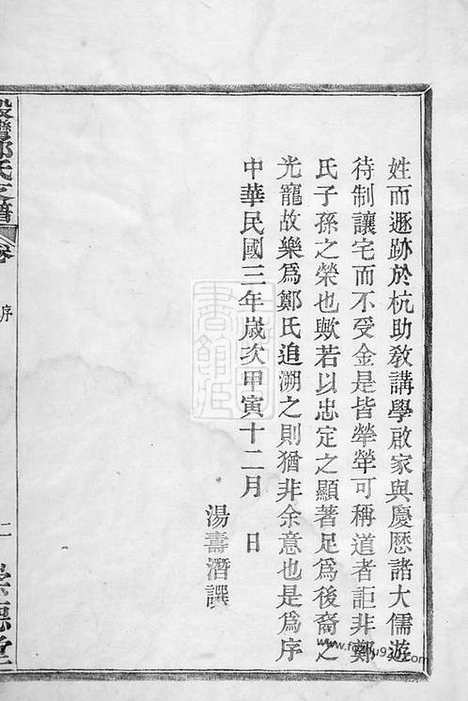 姓而遯跡於杭助教講學啟家與慶歷諸大儒遊
待制讓宅而不受金是皆犖犖可稱道者詎非鄭
氏子孫之榮也歟若以忠定之顯著足爲後裔之
光寵故樂爲鄭氏追溯之則猶非余意也是爲序
中華民國三年歲次甲寅十二月 日
湯壽潛譔
鄭氏支譜
卷
序
二
崇德堂